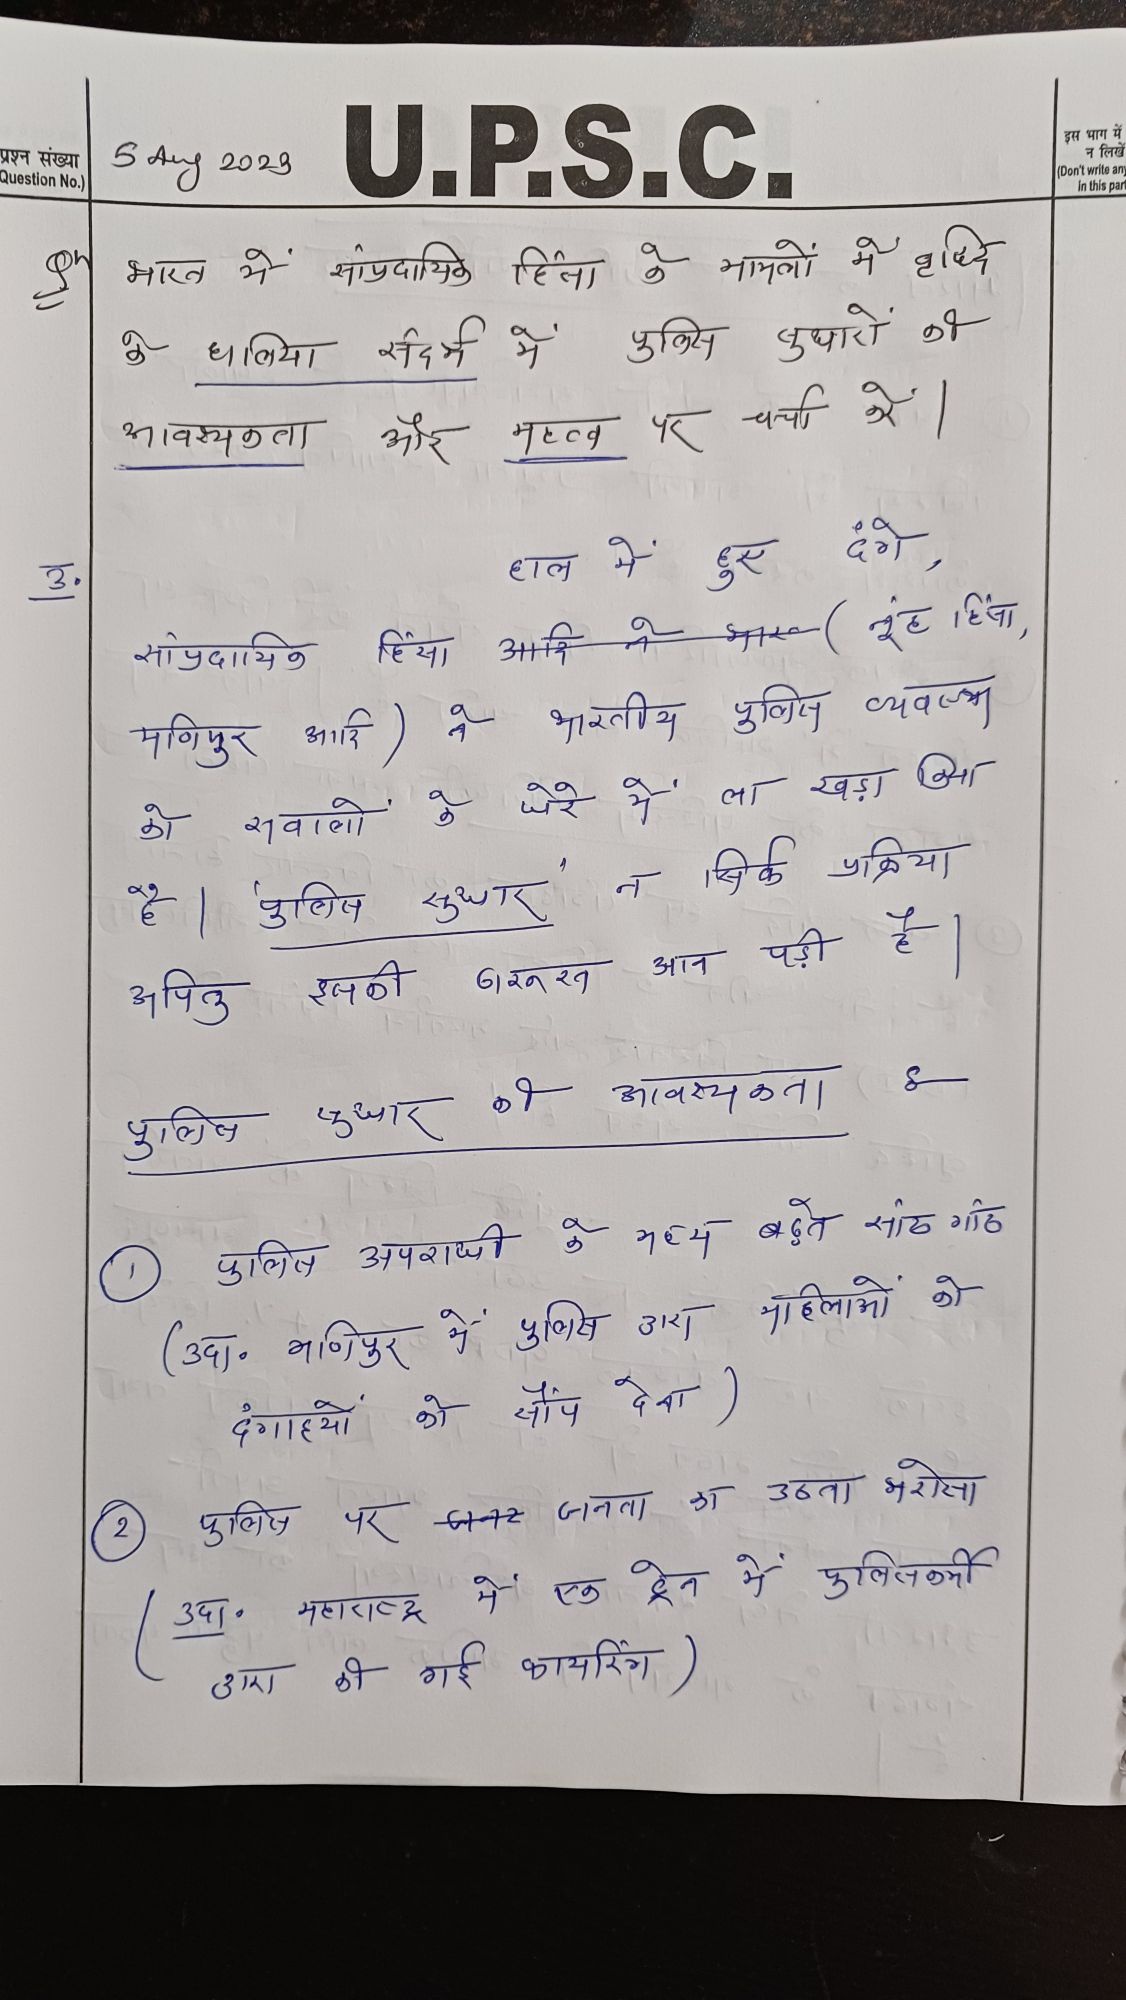 U.P.S.C.
प्रश्न संख्या
(Question No.)
5 Aug 2023
इस भाग में
न लिखें
(Don't write any
in this part
प्रश्न भारत में सांप्रदायिक हिंसा के मामलों में वृद्धि
के हालिया संदर्भ में पुलिस सुधारों की
आवश्यकता और महत्व पर चर्चा करें।
उ.
हाल में हुए दंगे,
सांप्रदायिक हिंसा आदि ने भारत (नूंह हिंसा,
मणिपुर आदि) ने भारतीय पुलिस व्यवस्था
को सवालों के घेरे में ला खड़ा किया
है। 'पुलिस सुधार' न सिर्फ प्रक्रिया
अपितु इसकी जरूरत आन पड़ी है।
पुलिस सुधार की आवश्यकता :-
1 पुलिस अपराधी के मध्य बढ़ते सांठ गांठ
(उदा. मणिपुर में पुलिस द्वारा महिलाओं को
दंगाइयों को सौंप देना)
2 पुलिस पर जनता का उठता भरोसा
(उदा. महाराष्ट्र में एक ट्रेन में पुलिसकर्मी
द्वारा की गई फायरिंग)